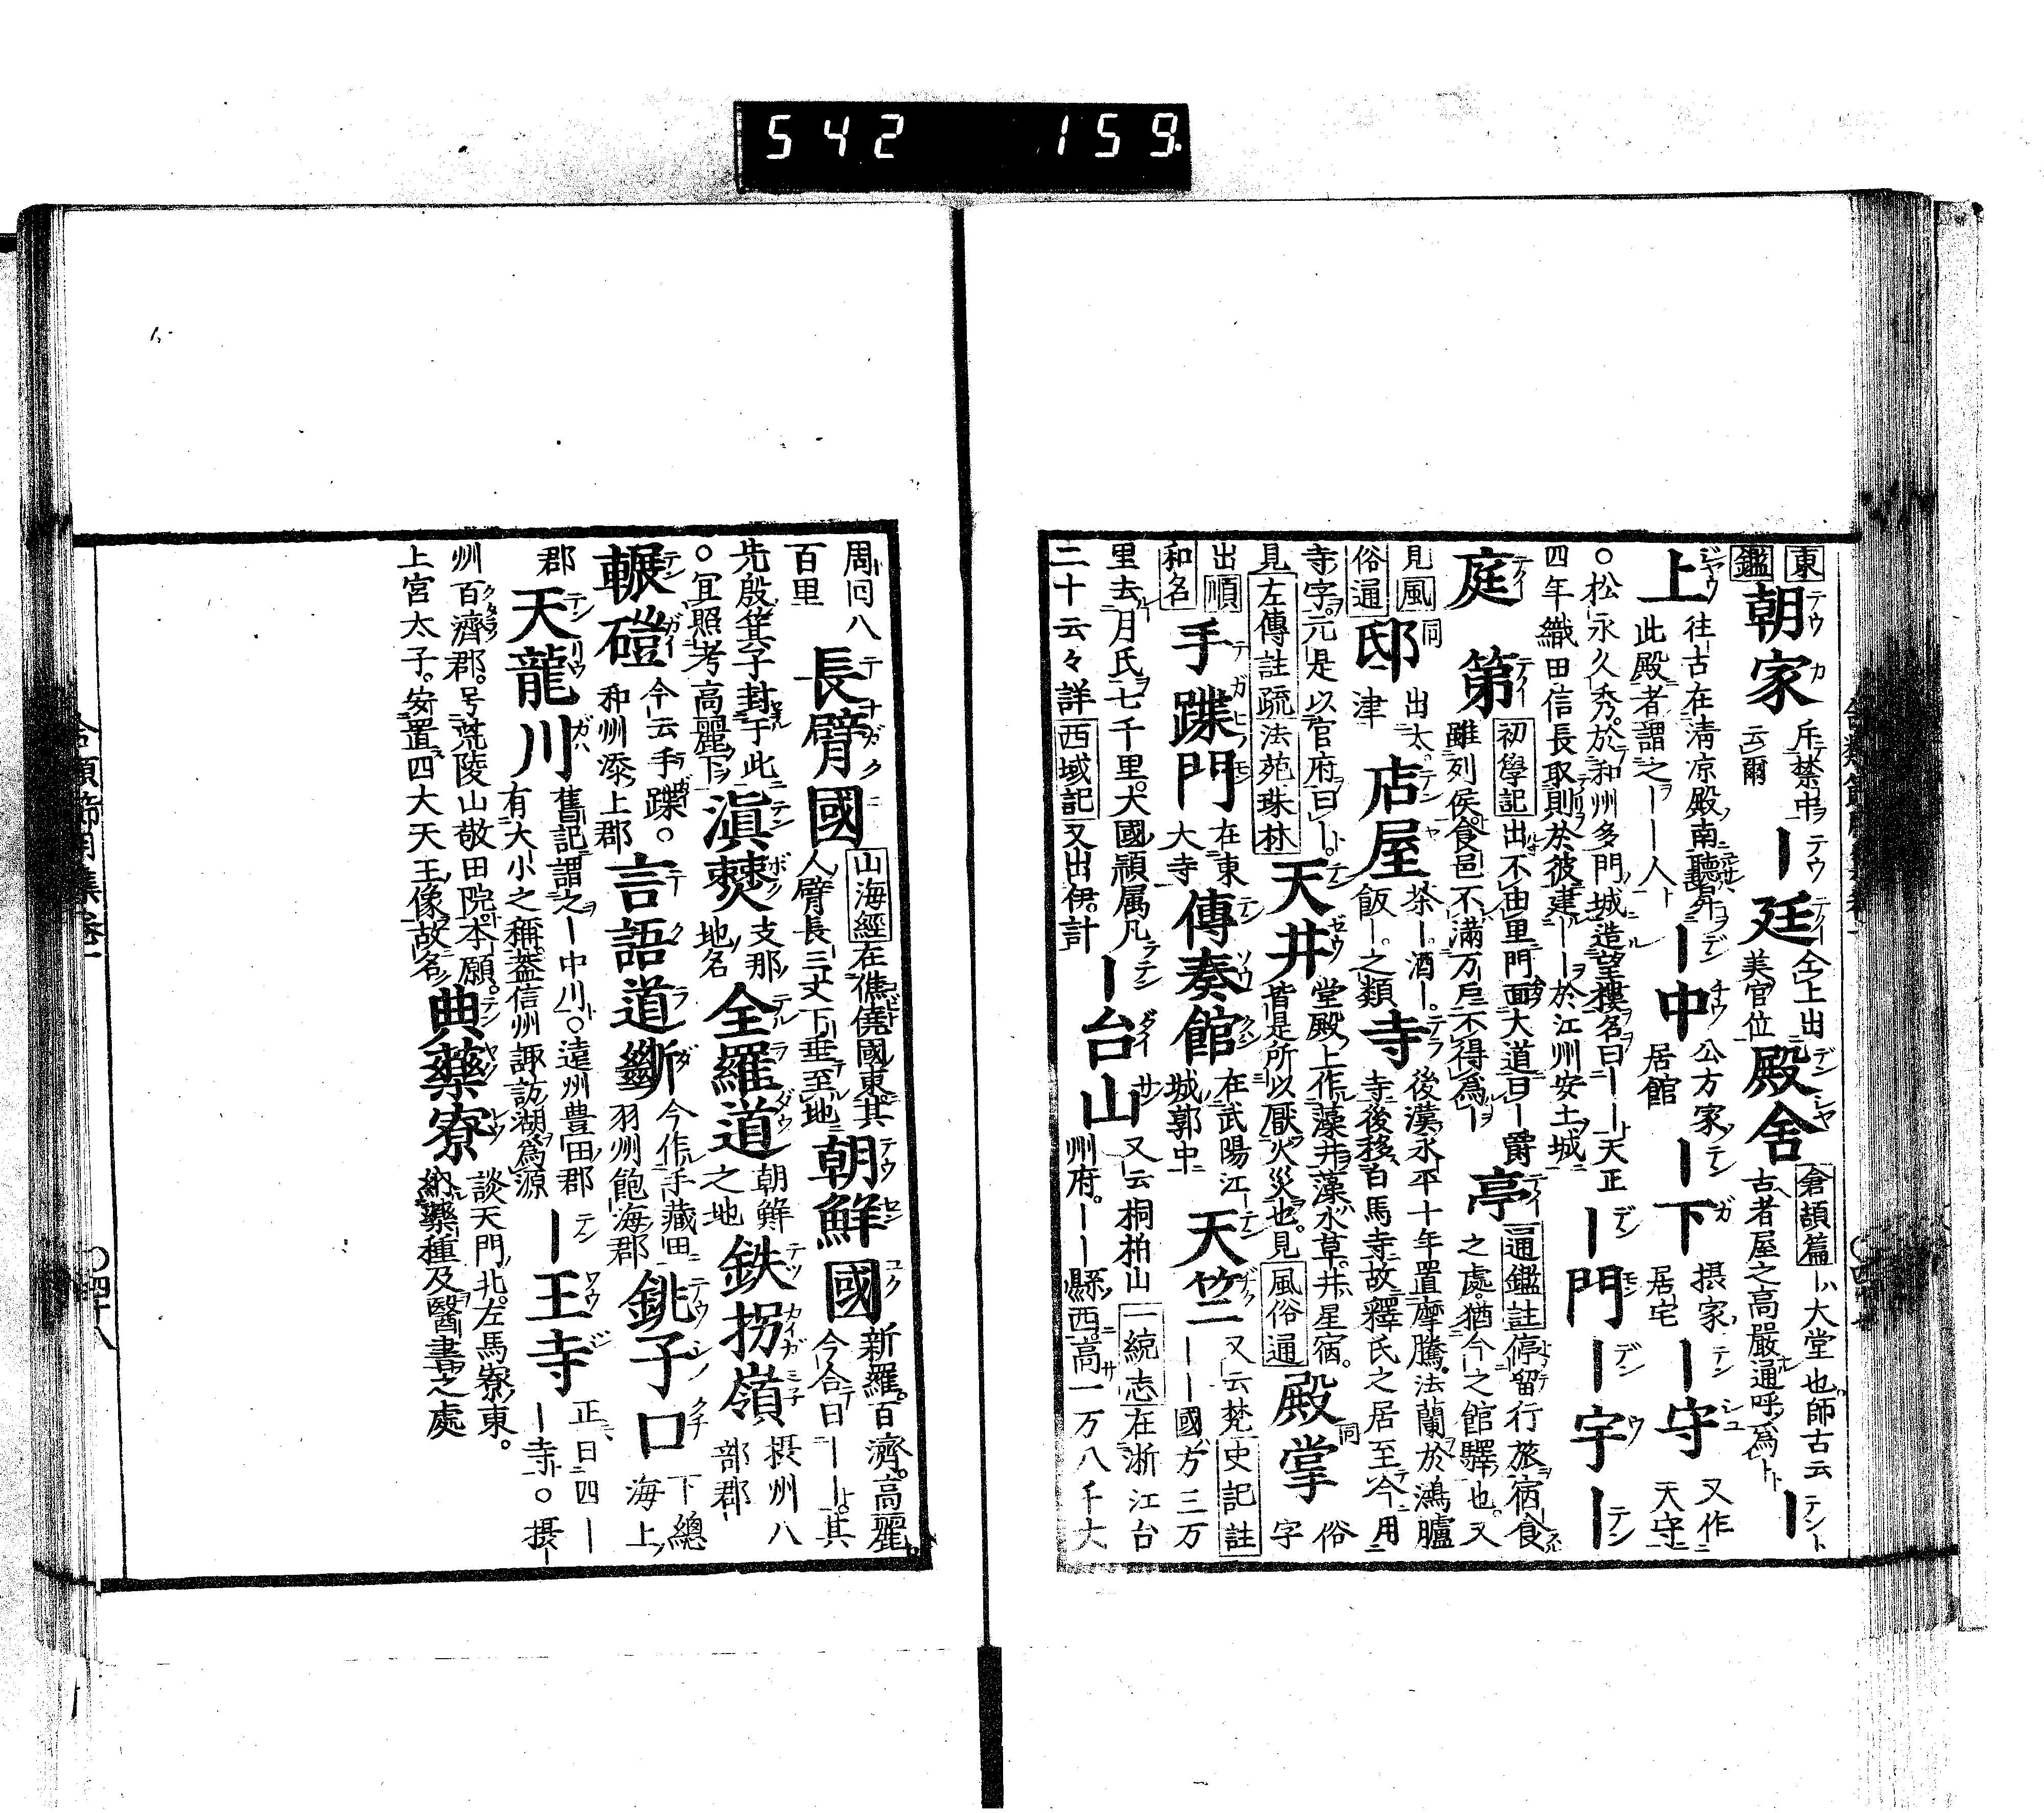 542 159.
東鑑 朝家 斥禁中云爾 ー廷 仝上出美官位 殿舎 倉頡篇ー大堂也師古云古者屋之高嚴通呼為ー ー
上 往古在清凉殿南聽昇此殿者謂之ーー人 ー中 公方家居館 ー下 摂家居宅 ー守 又作天守
○松永久秀於和州多門城造望樓名曰ーー天正四年織田信長取則於彼建ーー於江州安土城 ー門 ー宇 ー
庭 第 初學記出不由里門面大道曰ー爵雖列侯食邑不滿万戸不得為ー 亭 通鑑註停留行旅宿食之處猶今之館驛也又
見風俗通 邸 出太津 店屋 茶ー酒ー飯ー之類 寺 後漢永平十年置摩騰法蘭於鴻臚寺後移白馬寺故釋氏之居至今用
寺字元是以官府曰ー見左傳註疏法苑珠林 天井 堂殿上作藻井藻水草井星宿皆是所以厭火災也見風俗通 殿掌 俗字
出順和名 手蹀門 在東大寺 傳奏館 在武陽江城郭中 天竺 又云梵史記註ーー國方三万
里去月氏七千里大國頴属凡二十云々詳西域記又出伊計 ー台山 又云桐柏山一統志在浙江台州府ーー縣西高一万八千大
周囘八百里 長臂國 山海經在僬僥國東其人臂長三丈下垂至地 朝鮮國 新羅百濟高麗今合曰ーー其
先殷箕子封于此○宜照考高麗下 滇僰 支那地名 全羅道 朝鮮之地 鉄拐嶺 摂州八部郡
輾磑 今云手蹀○和州添上郡 言語道斷 今作手藏田羽州飽海郡 銚子口 下總海上
郡 天龍川 舊記謂之ー中川○遠州豊田郡有大小之稱蓋信州諏訪湖為源 ー王寺 正曰四ーー寺○摂ー
州百濟郡号荒陵山敬田院本願上宮太子安置四大天王像故名 典藥寮 談天門北左馬寮東納藥種及醫書之處
合類節用集卷一 ○四十八